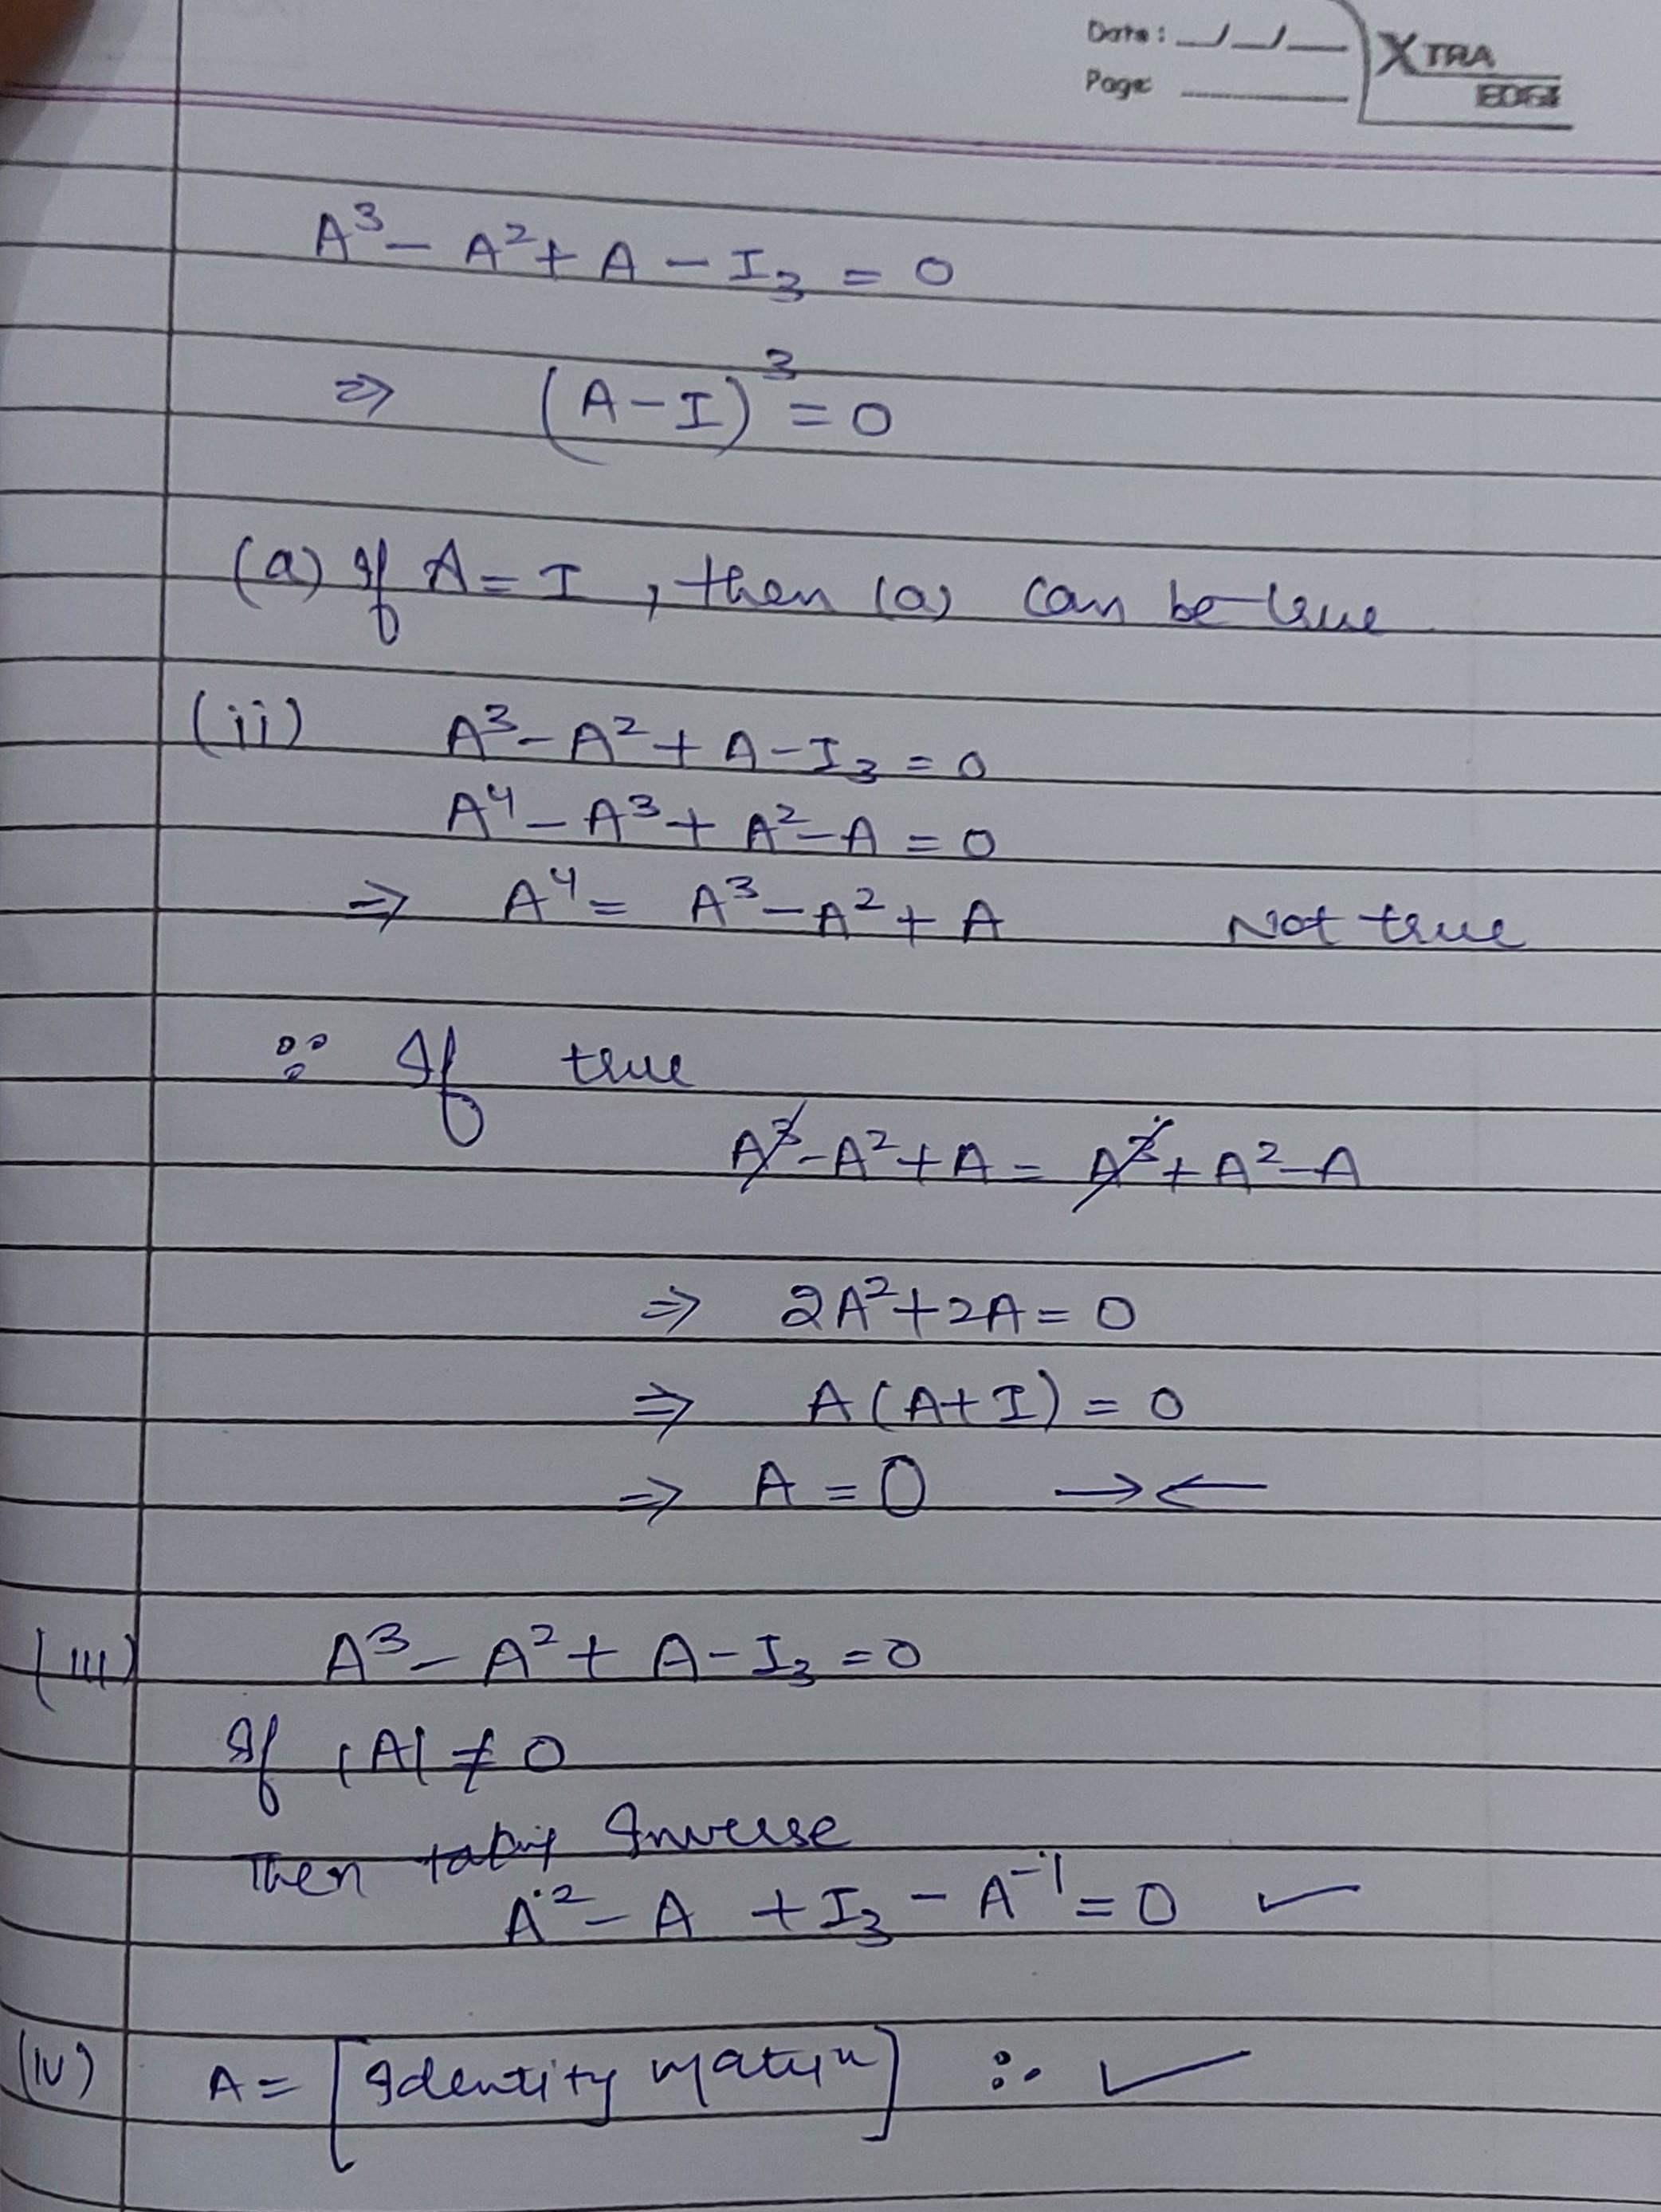 Date: __/__/__
XTRA
Page
EDGE
A³ - A² + A - I₃ = 0
⇒ (A - I)³ = 0
(a) If A = I , then (a) can be true
(ii) A³ - A² + A - I₃ = 0
A⁴ - A³ + A² - A = 0
⇒ A⁴ = A³ - A² + A Not true
∵ If true
A³ - A² + A = A³ + A² - A
⇒ 2A² + 2A = 0
⇒ A(A + I) = 0
⇒ A = 0 →←
(iii) A³ - A² + A - I₃ = 0
If |A| ≠ 0
Then taking Inverse
A² - A + I₃ - A⁻¹ = 0 ✓
(iv) A = [Identity matrix] ∴ ✓